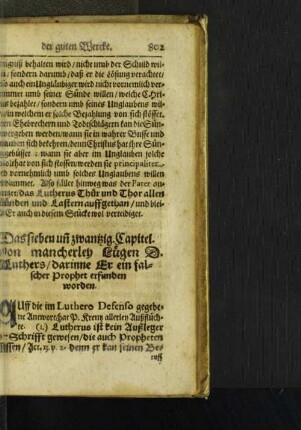 der guten Wercke. 802
fengnuß behalten wird / nicht umb der Schuld wil-
len / sondern darumb / daß er die Lösung verachtet /
also auch ein Unglaubiger wird nicht vornemlich ver-
dammet umb seiner Sünde willen / welche Chri-
stus bezahlet / sondern umb seines Unglaubens wil-
len / in welchem er solche Bezahlung von sich stösset.
Den Ehebrechern und Todschlägern kan die Sün-
de vergeben werden / wann sie in wahrer Busse und
Glauben sich bekehren / denn Christus hat ihre Sün-
de gebüsset: wann sie aber im Unglauben solche
Wolthat von sich stossen / werden sie principaliter
und vornehmlich umb solches Unglaubens willen
verdammet. Also fället hinweg was der Pater an-
das Lutherus Thür und Thor allen
Sünden und Lastern auffgethan / und blei-
bet Er auch in diesem Stücke wol verteidiget.
Das sieben uñ zwantzig. Capitel.
Von mancherley Lügen D.
Luthers / darinne Er ein fal-
scher Prophet erfunden
worden.
AUff die im Luthero Defenso gegebe-
ne Antwort hat P. Kreutz allerley Außflüch-
te. (1.) Lutherus ist kein Außleger
der Schrifft gewesen / die auch Propheten
heissen / Act. 13. v. 2. denn er kan seinen Be-
ruff